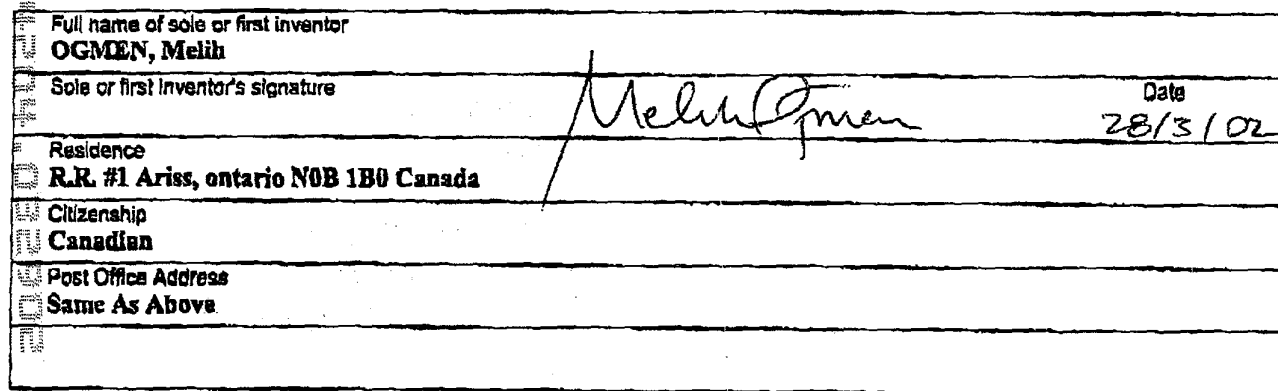 Full name of sole or first inventor
OGMEN, Melih
Sole or first inventor's signature
Melih Ogmen
Date
28/3/02
Residence
R.R. #1 Ariss, ontario N0B 1B0 Canada
Citizenship
Canadian
Post Office Address
Same As Above